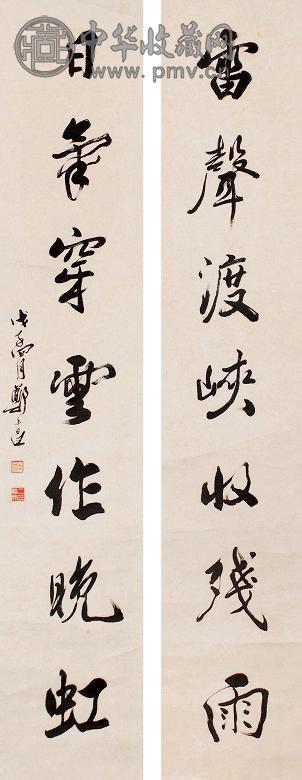 中华收藏网
www.pmv.cn
雷聲渡峽收殘雨
日氣穿雲作晚虹
戊子四月鄭